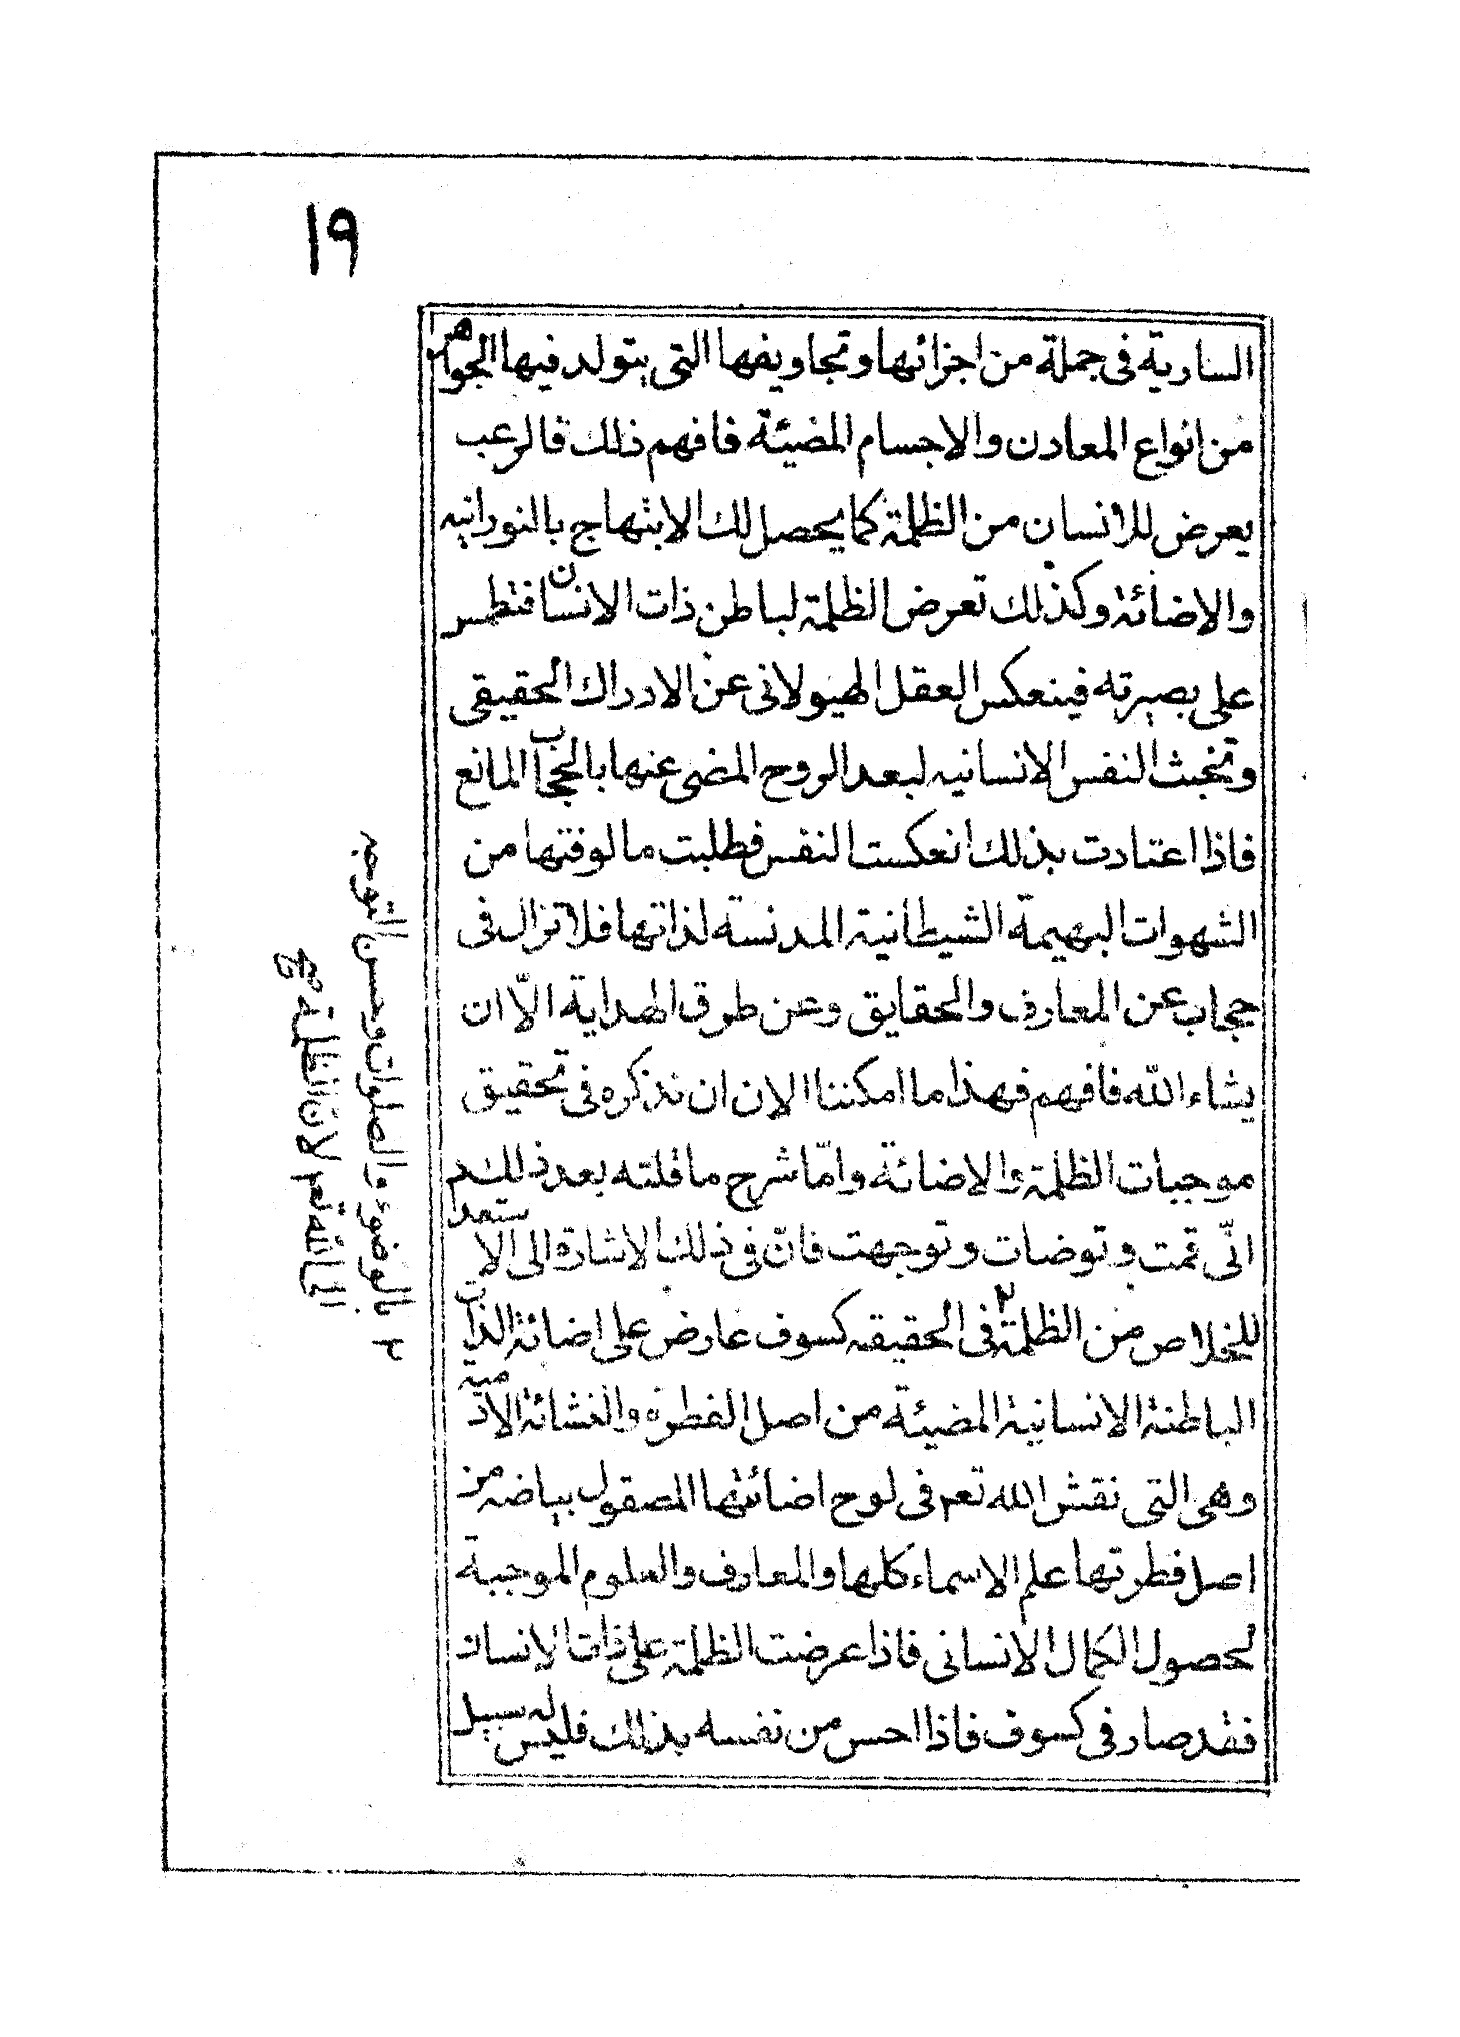 ١٩
السارية فى جملة من اجزائها وتجاويفها التى يتولد فيها الجواهر
من انواع المعادن والاجسام المضيئة فافهم ذلك فالرعب
يعرض للانسان من الظلمة كما يحصل لك الابتهاج بالنورانيه
والاضائة وكذلك تعرض الظلمة لباطن ذات الانسان فتطمس
على بصيرته فينعكس العقل الهيولانى عن الادراك الحقيقى
وتخبث النفس الانسانيه لبعد الروح المضى عنها بالحجاب المانع
فاذا اعتادت بذلك انعكست النفس فطلبت مالوفتها من
الشهوات البهيمة الشيطانية المدنسة لذاتها فلا تزال فى
حجاب عن المعارف والحقايق وعن طرق الهداية الّا ان
يشاء الله فافهم فهذا ما امكننا الان ان نذكره فى تحقيق
موجبات الظلمة والاضائة وامّا شرح ما قلته بعد ذلك م
انّى قمت وتوضات وتوجهت فانّ فى ذلك الاشارة الى الاستعداد
للخلاص من الظلمة ٢ فى الحقيقه كسوف عارض على اضائة الذات
الباطنة الانسانية المضيئة من اصل الفطرة والنشائة الادمية
وهى التى نقش الله تعم فى لوح اضائتها المصقول ببياضه من
اصل فطرتها علم الاسماء كلها والمعارف والعلوم الموجبة
لحصول الكمال الانسانى فاذا عرضت الظلمة على ذات الانسان
فقد صار فى كسوف فاذا احس من نفسه بذلك فليس له سبيل
٢ بالوضوء والصلوات وحسن التوجه
الى الله تعم لان الظلمة صح